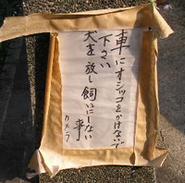 車にオシッコをかけないで
下さい
犬を放し飼いにしない
事
カメラ